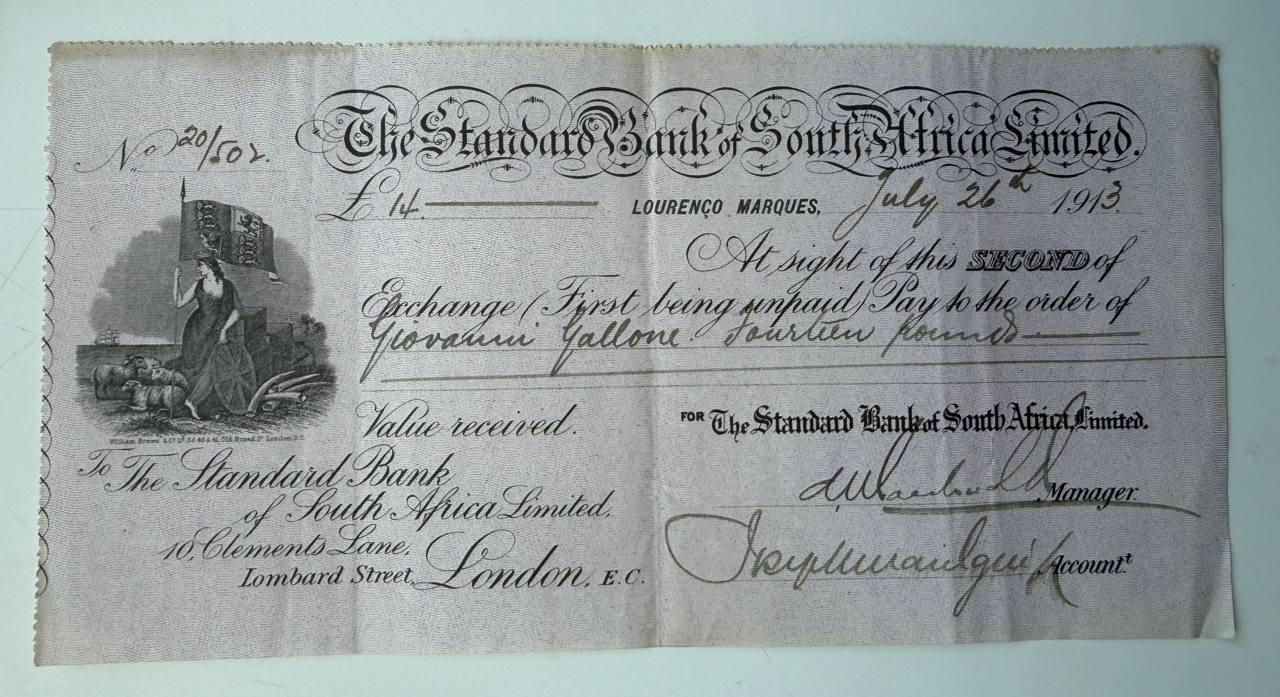 The Standard Bank of South Africa Limited.
No. 20/502.
£ 14. LOURENÇO MARQUES, July 26th 1913.
At sight of this SECOND of
Exchange (First being unpaid) Pay to the order of
Giovanni Gallone. Fourteen pounds
Value received.
FOR The Standard Bank of South Africa, Limited.
William Brown & Co. Ld. 40 & 41, Old Broad St. London, E.C.
To The Standard Bank
of South Africa Limited,
10, Clements Lane,
Lombard Street, London, E.C.
Manager.
Accountt.